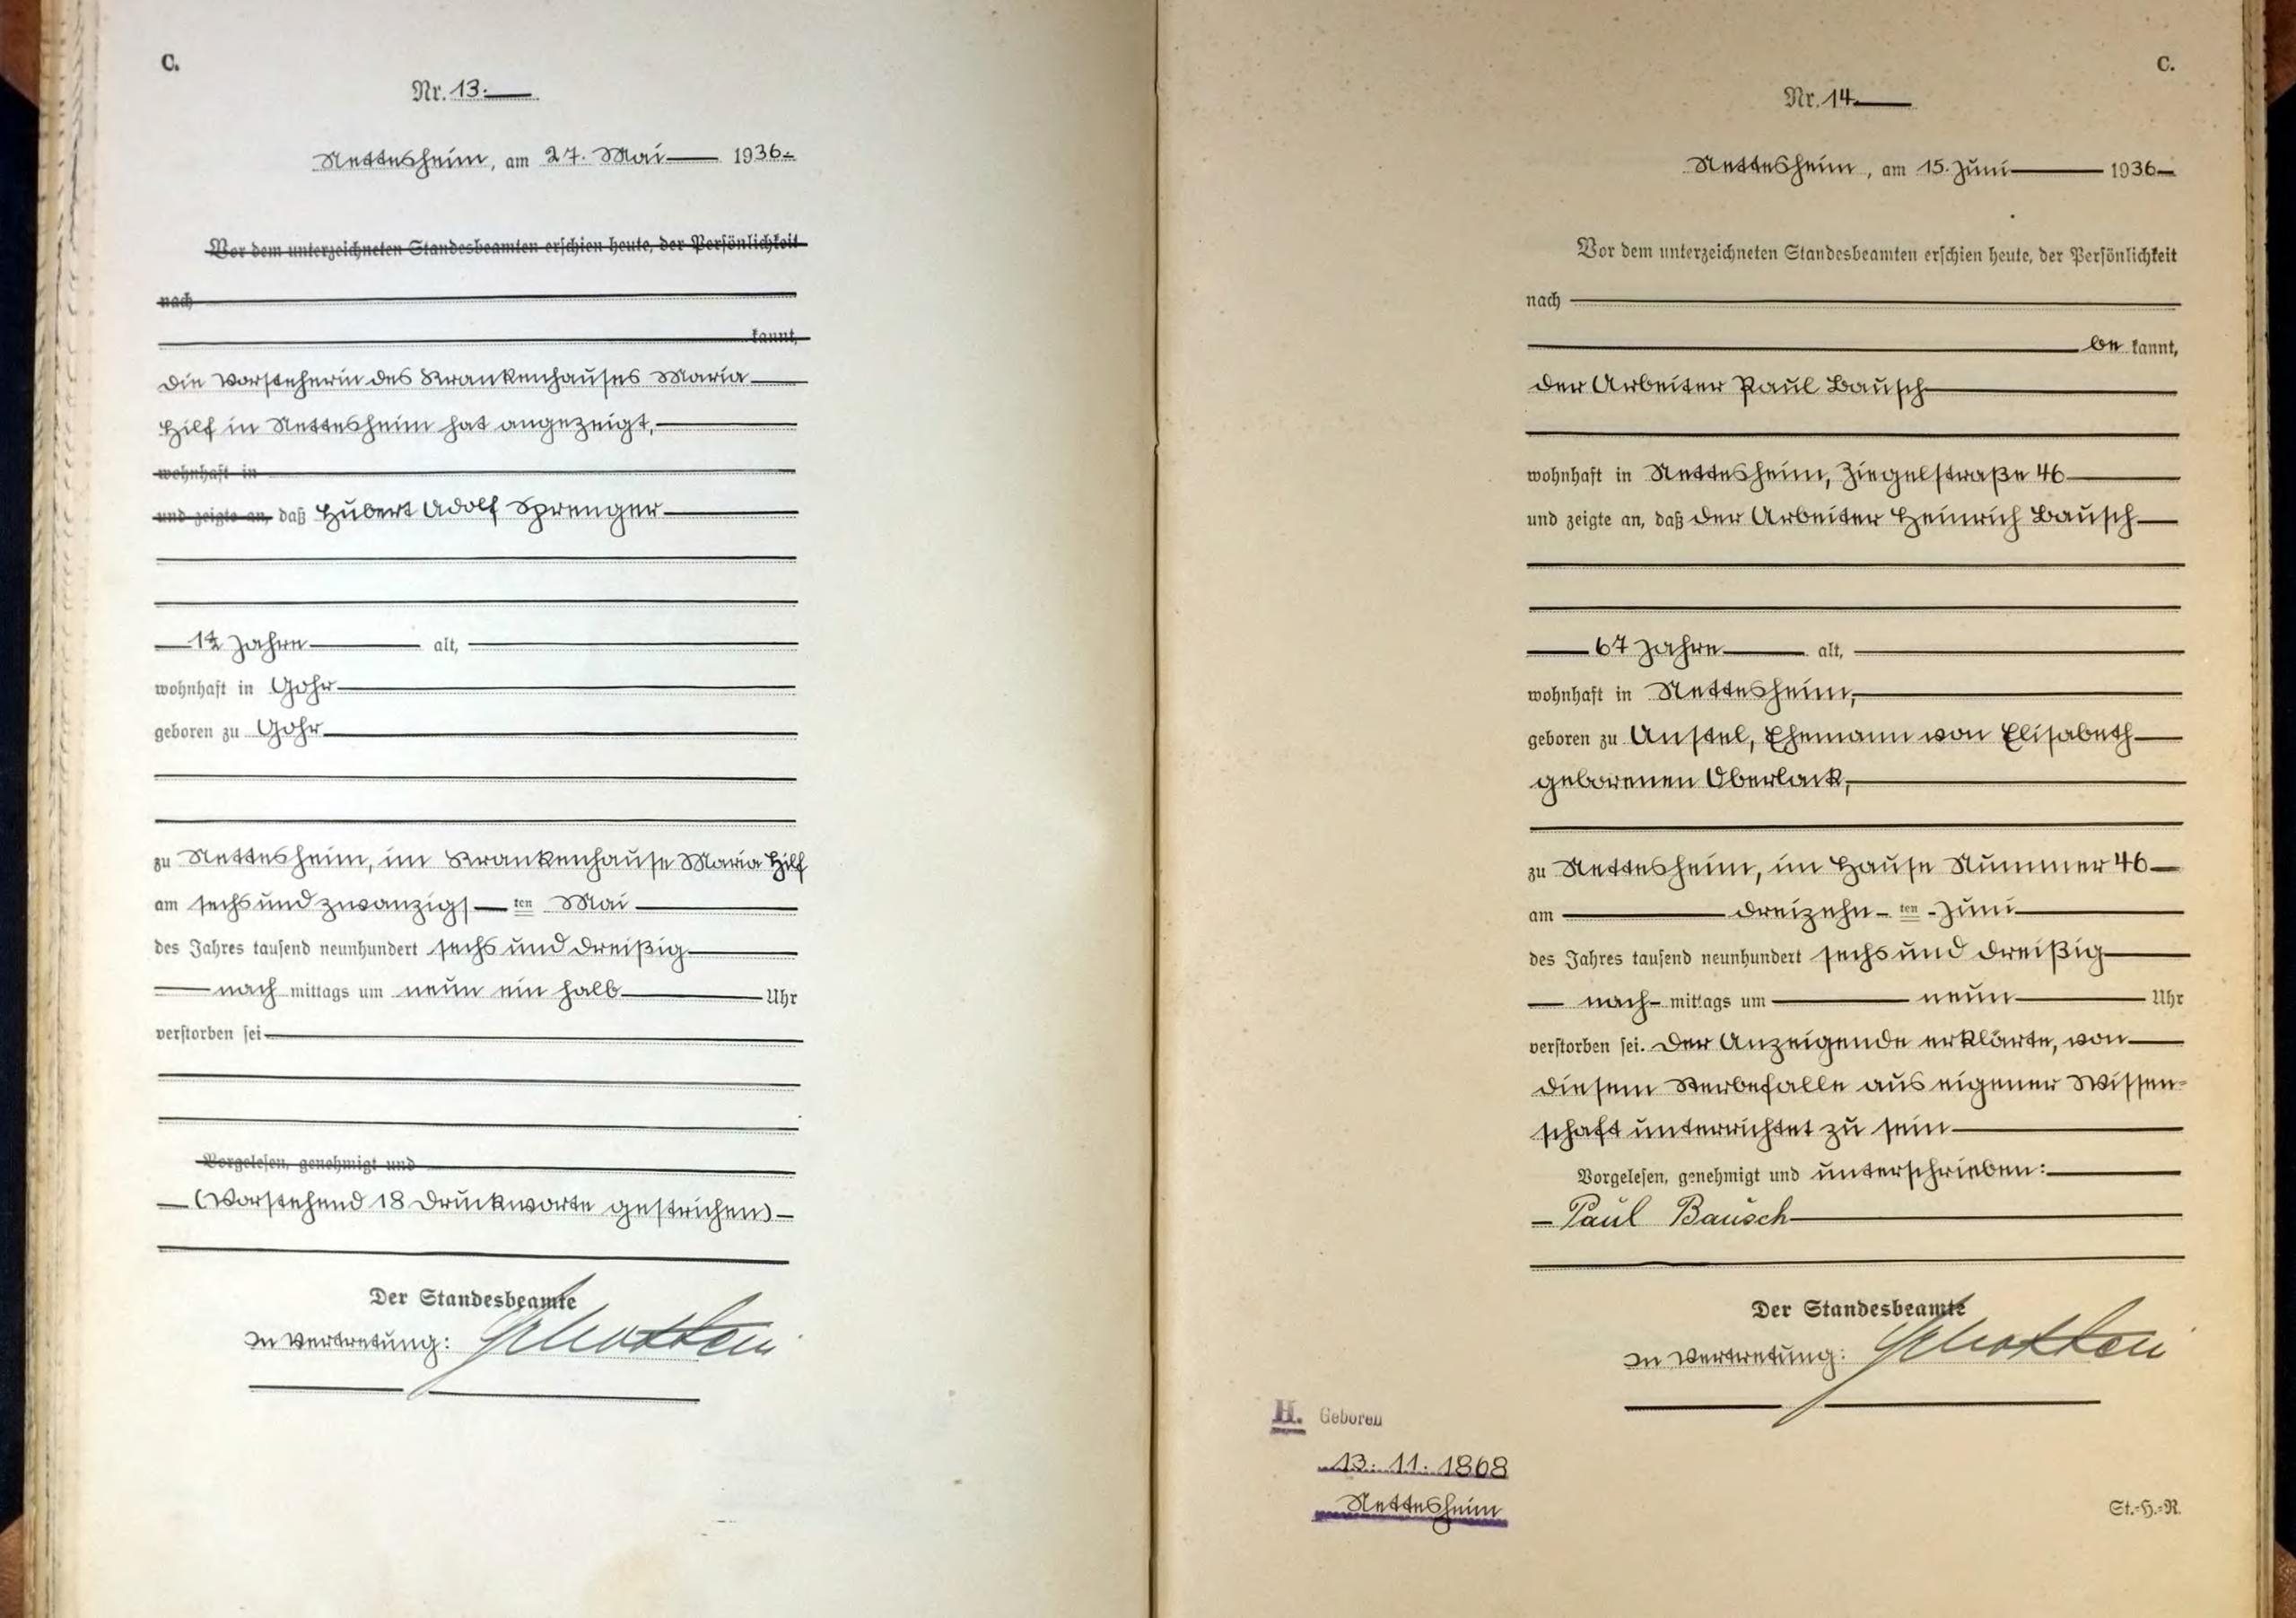 C.
Nr. 13.
Nettesheim, am 27. Mai 1936.
Vor dem unterzeichneten Standesbeamten erschien heute, der Persönlichkeit
nach
kannt,
die Vorsteherin des Krankenhauses Maria
Hilf in Nettesheim hat angezeigt,
wohnhaft in
und zeigte an, daß Hubert Adolf Sprenger
Jahre alt,
wohnhaft in Gohr
geboren zu Gohr
zu Nettesheim, im Krankenhause Maria Hilf
am sechsundzwanzigs ten Mai
des Jahres tausend neunhundert sechs und dreißig
nach mittags um neun ein halb Uhr
verstorben sei
Vorgelesen, genehmigt und
(Vorstehend 18 Druckworte gestrichen)
Der Standesbeamte
In Vertretung:
C.
Nr. 14.
Nettesheim, am 15. Juni 1936
Vor dem unterzeichneten Standesbeamten erschien heute, der Persönlichkeit
nach
be kannt,
der Arbeiter Paul Bausch
wohnhaft in Nettesheim, Ziegelstraße 46
und zeigte an, daß der Arbeiter Heinrich Bausch
67 Jahre alt,
wohnhaft in Nettesheim,
geboren zu Anstel, Ehemann von Elisabeth
geborenen Oberlack,
zu Nettesheim, im Hause Nummer 46
am dreizehn- ten Juni
des Jahres tausend neunhundert sechs und dreißig
nach- mittags um neun Uhr
verstorben sei. Der Anzeigende erklärte, von
diesem Sterbefalle aus eigener Wissen-
schaft unterrichtet zu sein
Vorgelesen, genehmigt und unterschrieben:
Paul Bausch
Der Standesbeamte
In Vertretung:
H. Geboren
13. 11. 1868
Nettesheim
St.-H.-R.